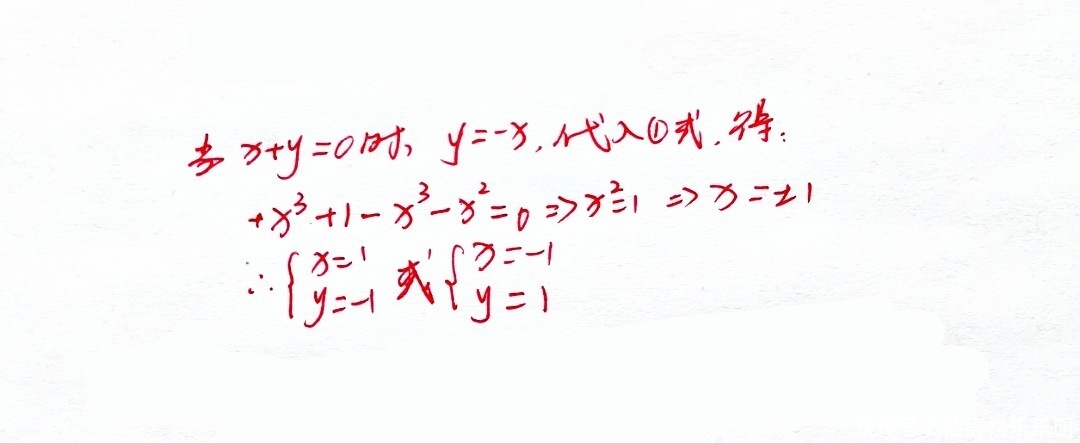 当 x+y=0时, y=-x, 代入①式, 得:
+x³+1-x³-x²=0 => x²=1 => x=±1
∴ { x=1 y=-1 或 { x=-1 y=1